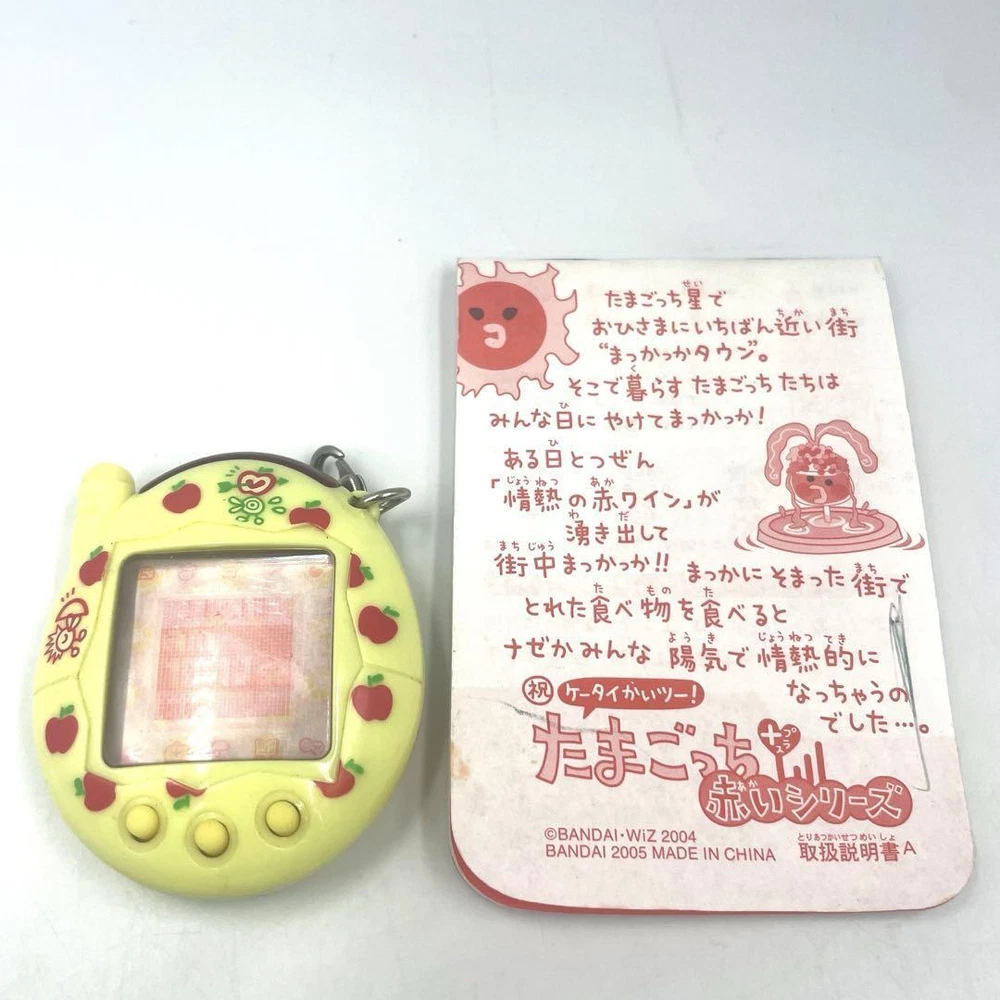 たまごっち星で
おひさまにいちばん近い街
“まっかっかタウン”。
そこで暮らす たまごっちたちは
みんな日に やけてまっかっか!
ある日とつぜん
「情熱の赤ワイン」が
湧き出して
街中まっかっか!! まっかに そまった 街で
とれた食べ物を食べると
ナゼか みんな 陽気で 情熱的に
なっちゃうの
でした…。
祝 ケータイかいツー!
たまごっち+プラス
赤いシリーズ
©BANDAI・WiZ 2004
BANDAI 2005 MADE IN CHINA 取扱説明書A